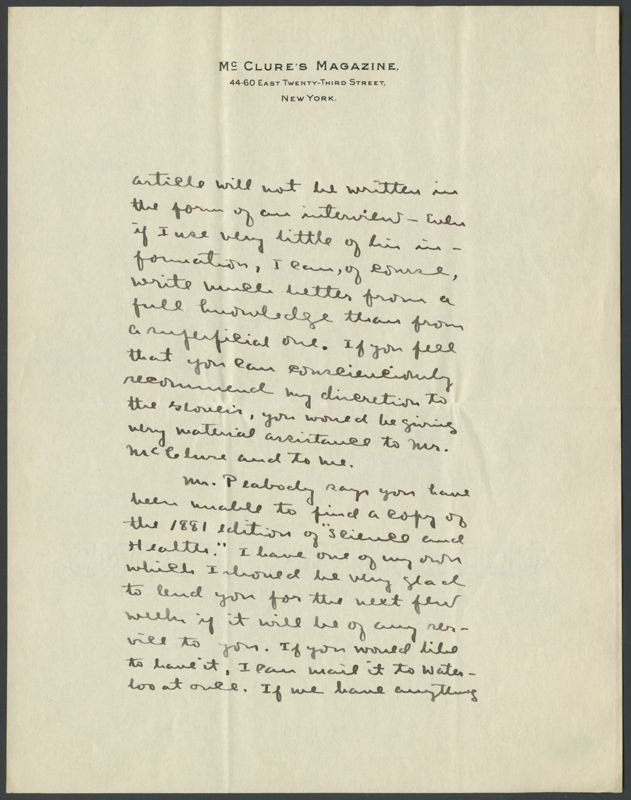 Mc CLURE'S MAGAZINE,
44-60 EAST TWENTY-THIRD STREET,
NEW YORK.
article will not be written in
the form of an interview - Even
if I use very little of his in -
formation, I can, of course,
write much better from a
full knowledge than from
a superficial one. If you feel
that you can conscienciously
recommend my discretion to
the , you would be giving
very material assistance to Mr.
McClure and to me.
Mr. Peabody says you have
been unable to find a copy of
the 1881 edition of "Science and
Health." I have one of my own
which I should be very glad
to lend you for the next few
weeks if it will be of any ser-
vice to you. If you would like
to have it, I can mail it to Water-
loo at once. If we have anything